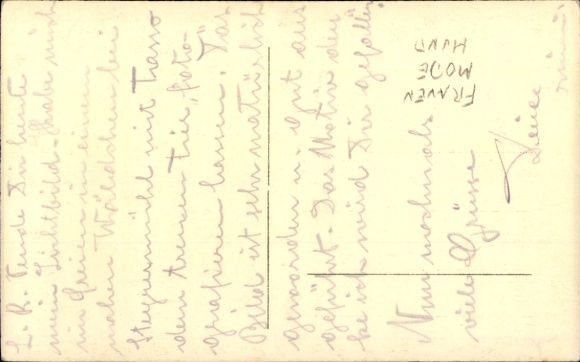 L. R. Sende Dir heute
mein Lichtbild. Habe mich
im Freien in einem
nahen Wäldchen bei
Steyrermühl mit Tasso
dem treuen Tier, foto-
grafieren lassen. Das
Bild ist sehr natürlich
geworden u. gut aus
geführt. Das Motiv den
ke ich wird Dir gefallen.
Nun nochmals
viele Grüsse
Deine
FRAUEN
MODE
HUND